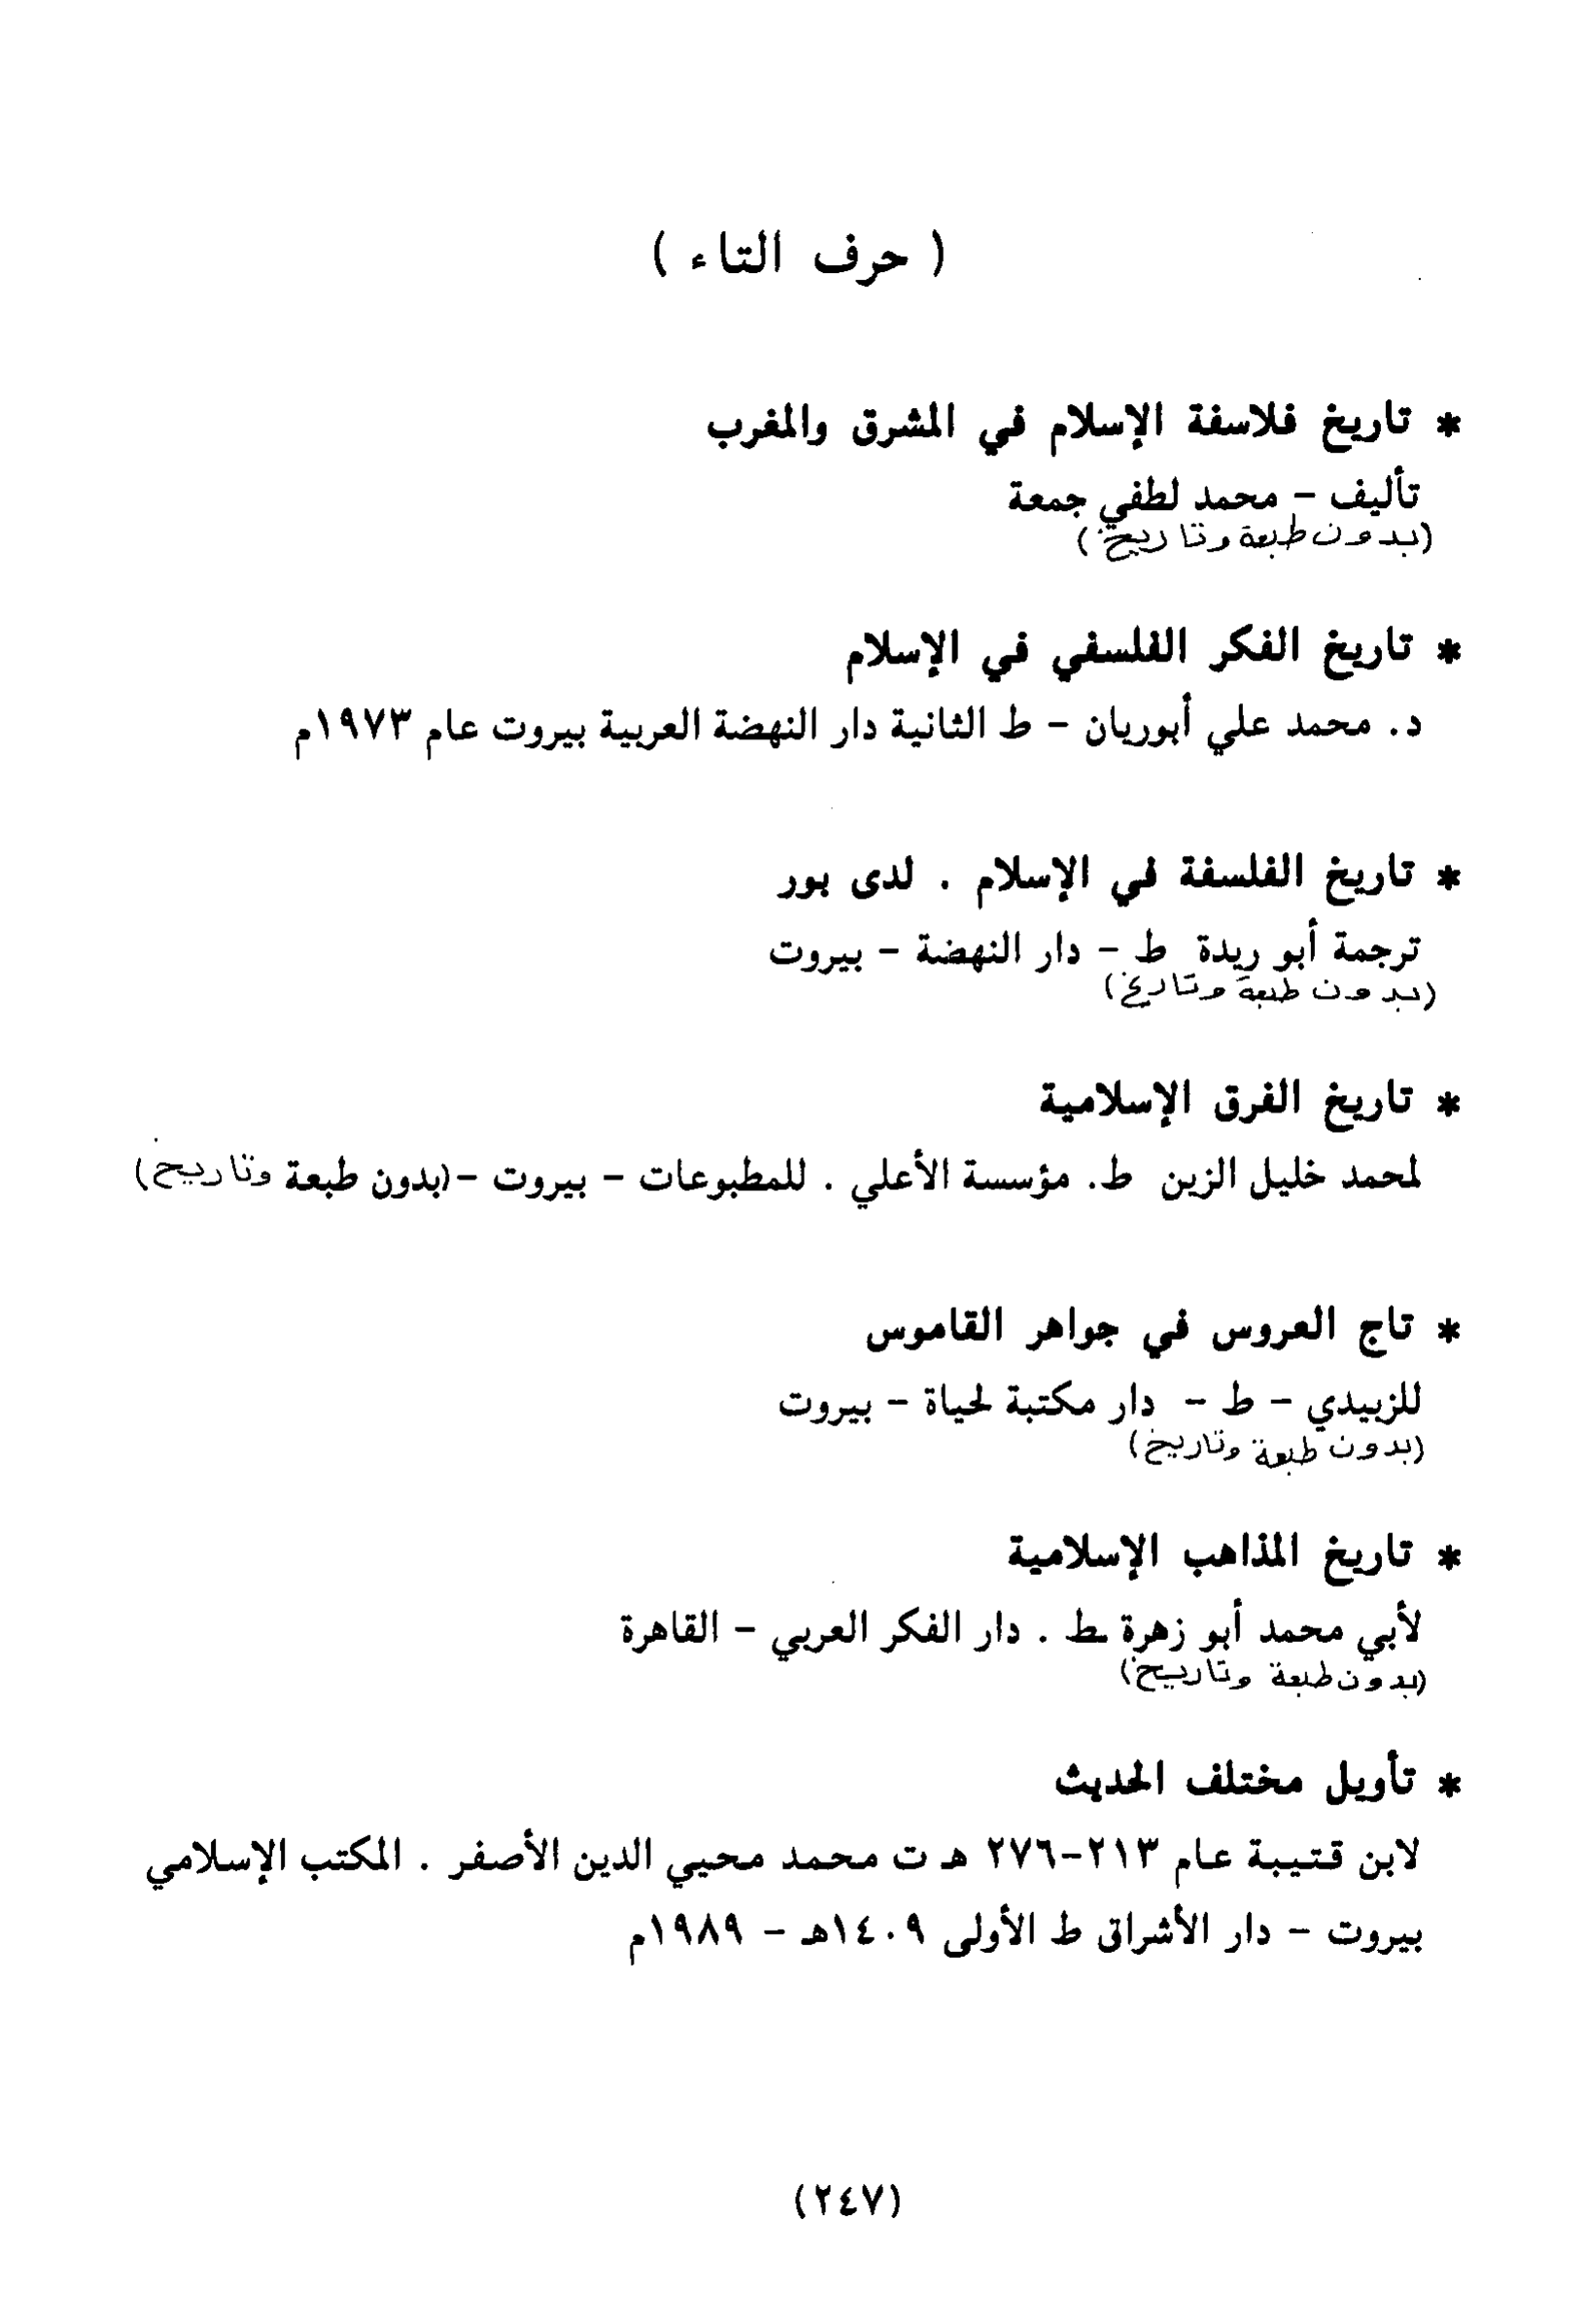 ( حرف التاء )
* تاريخ فلاسفة الإسلام في المشرق والمغرب
تأليف - محمد لطفي جمعة
(بدون طبعة وتاريخ)
* تاريخ الفكر الفلسفي في الإسلام
د. محمد علي أبوريان - ط الثانية دار النهضة العربية بيروت عام ١٩٧٣م
* تاريخ الفلسفة في الإسلام . لدى بور
ترجمة أبو ريدة ط - دار النهضة - بيروت
(بدون طبعة وتاريخ)
* تاريخ الفرق الإسلامية
لمحمد خليل الزين ط. مؤسسة الأعلي . للمطبوعات - بيروت -(بدون طبعة وتاريخ)
* تاج العروس في جواهر القاموس
للزبيدي - ط - دار مكتبة لحياة - بيروت
(بدون طبعة وتاريخ)
* تاريخ المذاهب الإسلامية
لأبي محمد أبو زهرة ط . دار الفكر العربي - القاهرة
(بدون طبعة وتاريخ)
* تأويل مختلف الحديث
لابن قتيبة عام ٢١٣-٢٧٦ هـ ت محمد محيي الدين الأصفر . المكتب الإسلامي
بيروت - دار الأشراق ط الأولى ١٤٠٩هـ - ١٩٨٩م
(٢٤٧)